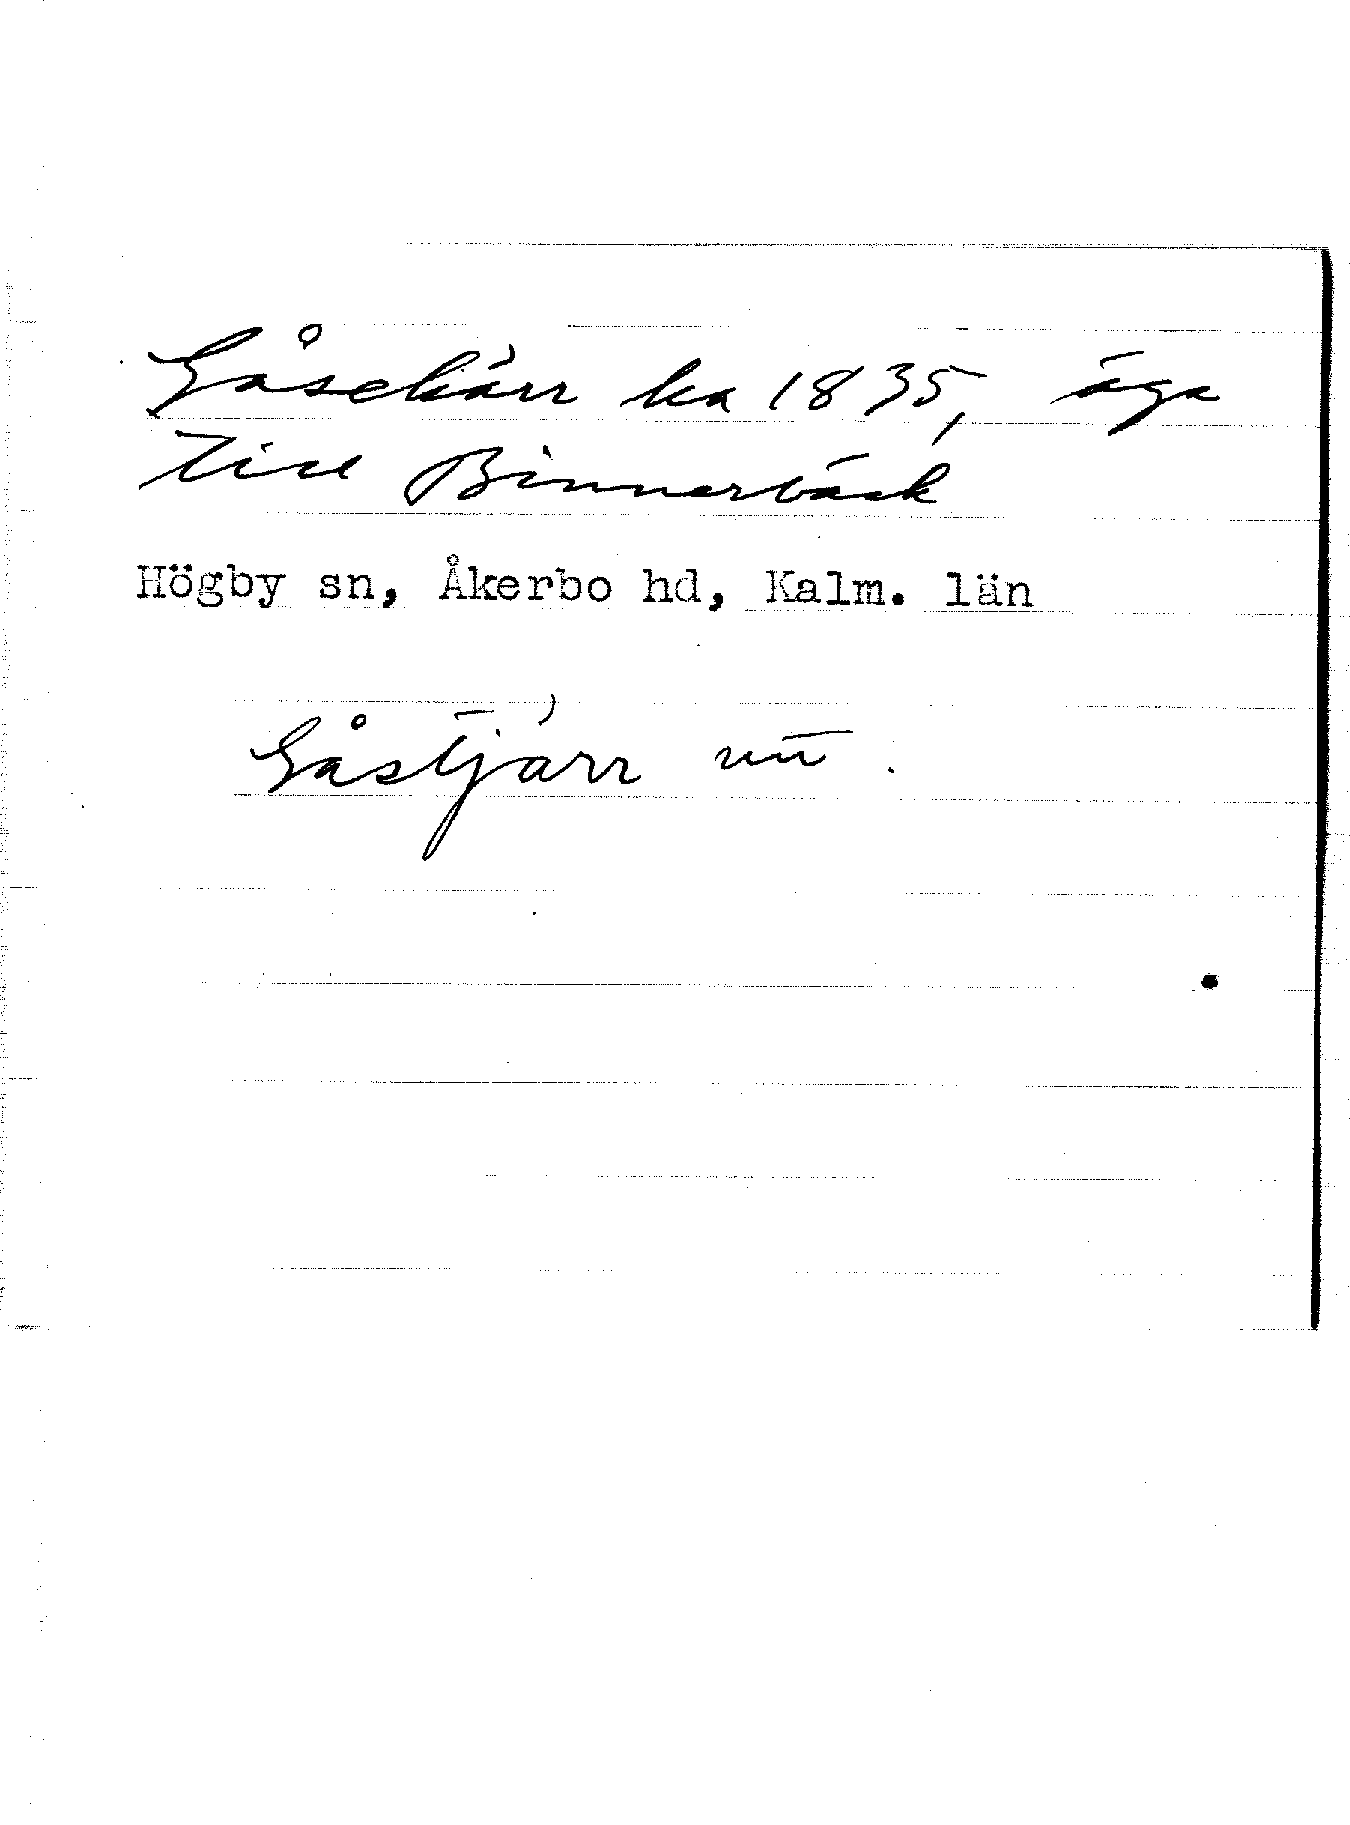 Gåsekärr ka 1835, äga
till Binnerbäck
Högby sn, Åkerbo hd, Kalm. län
Gåstjärr